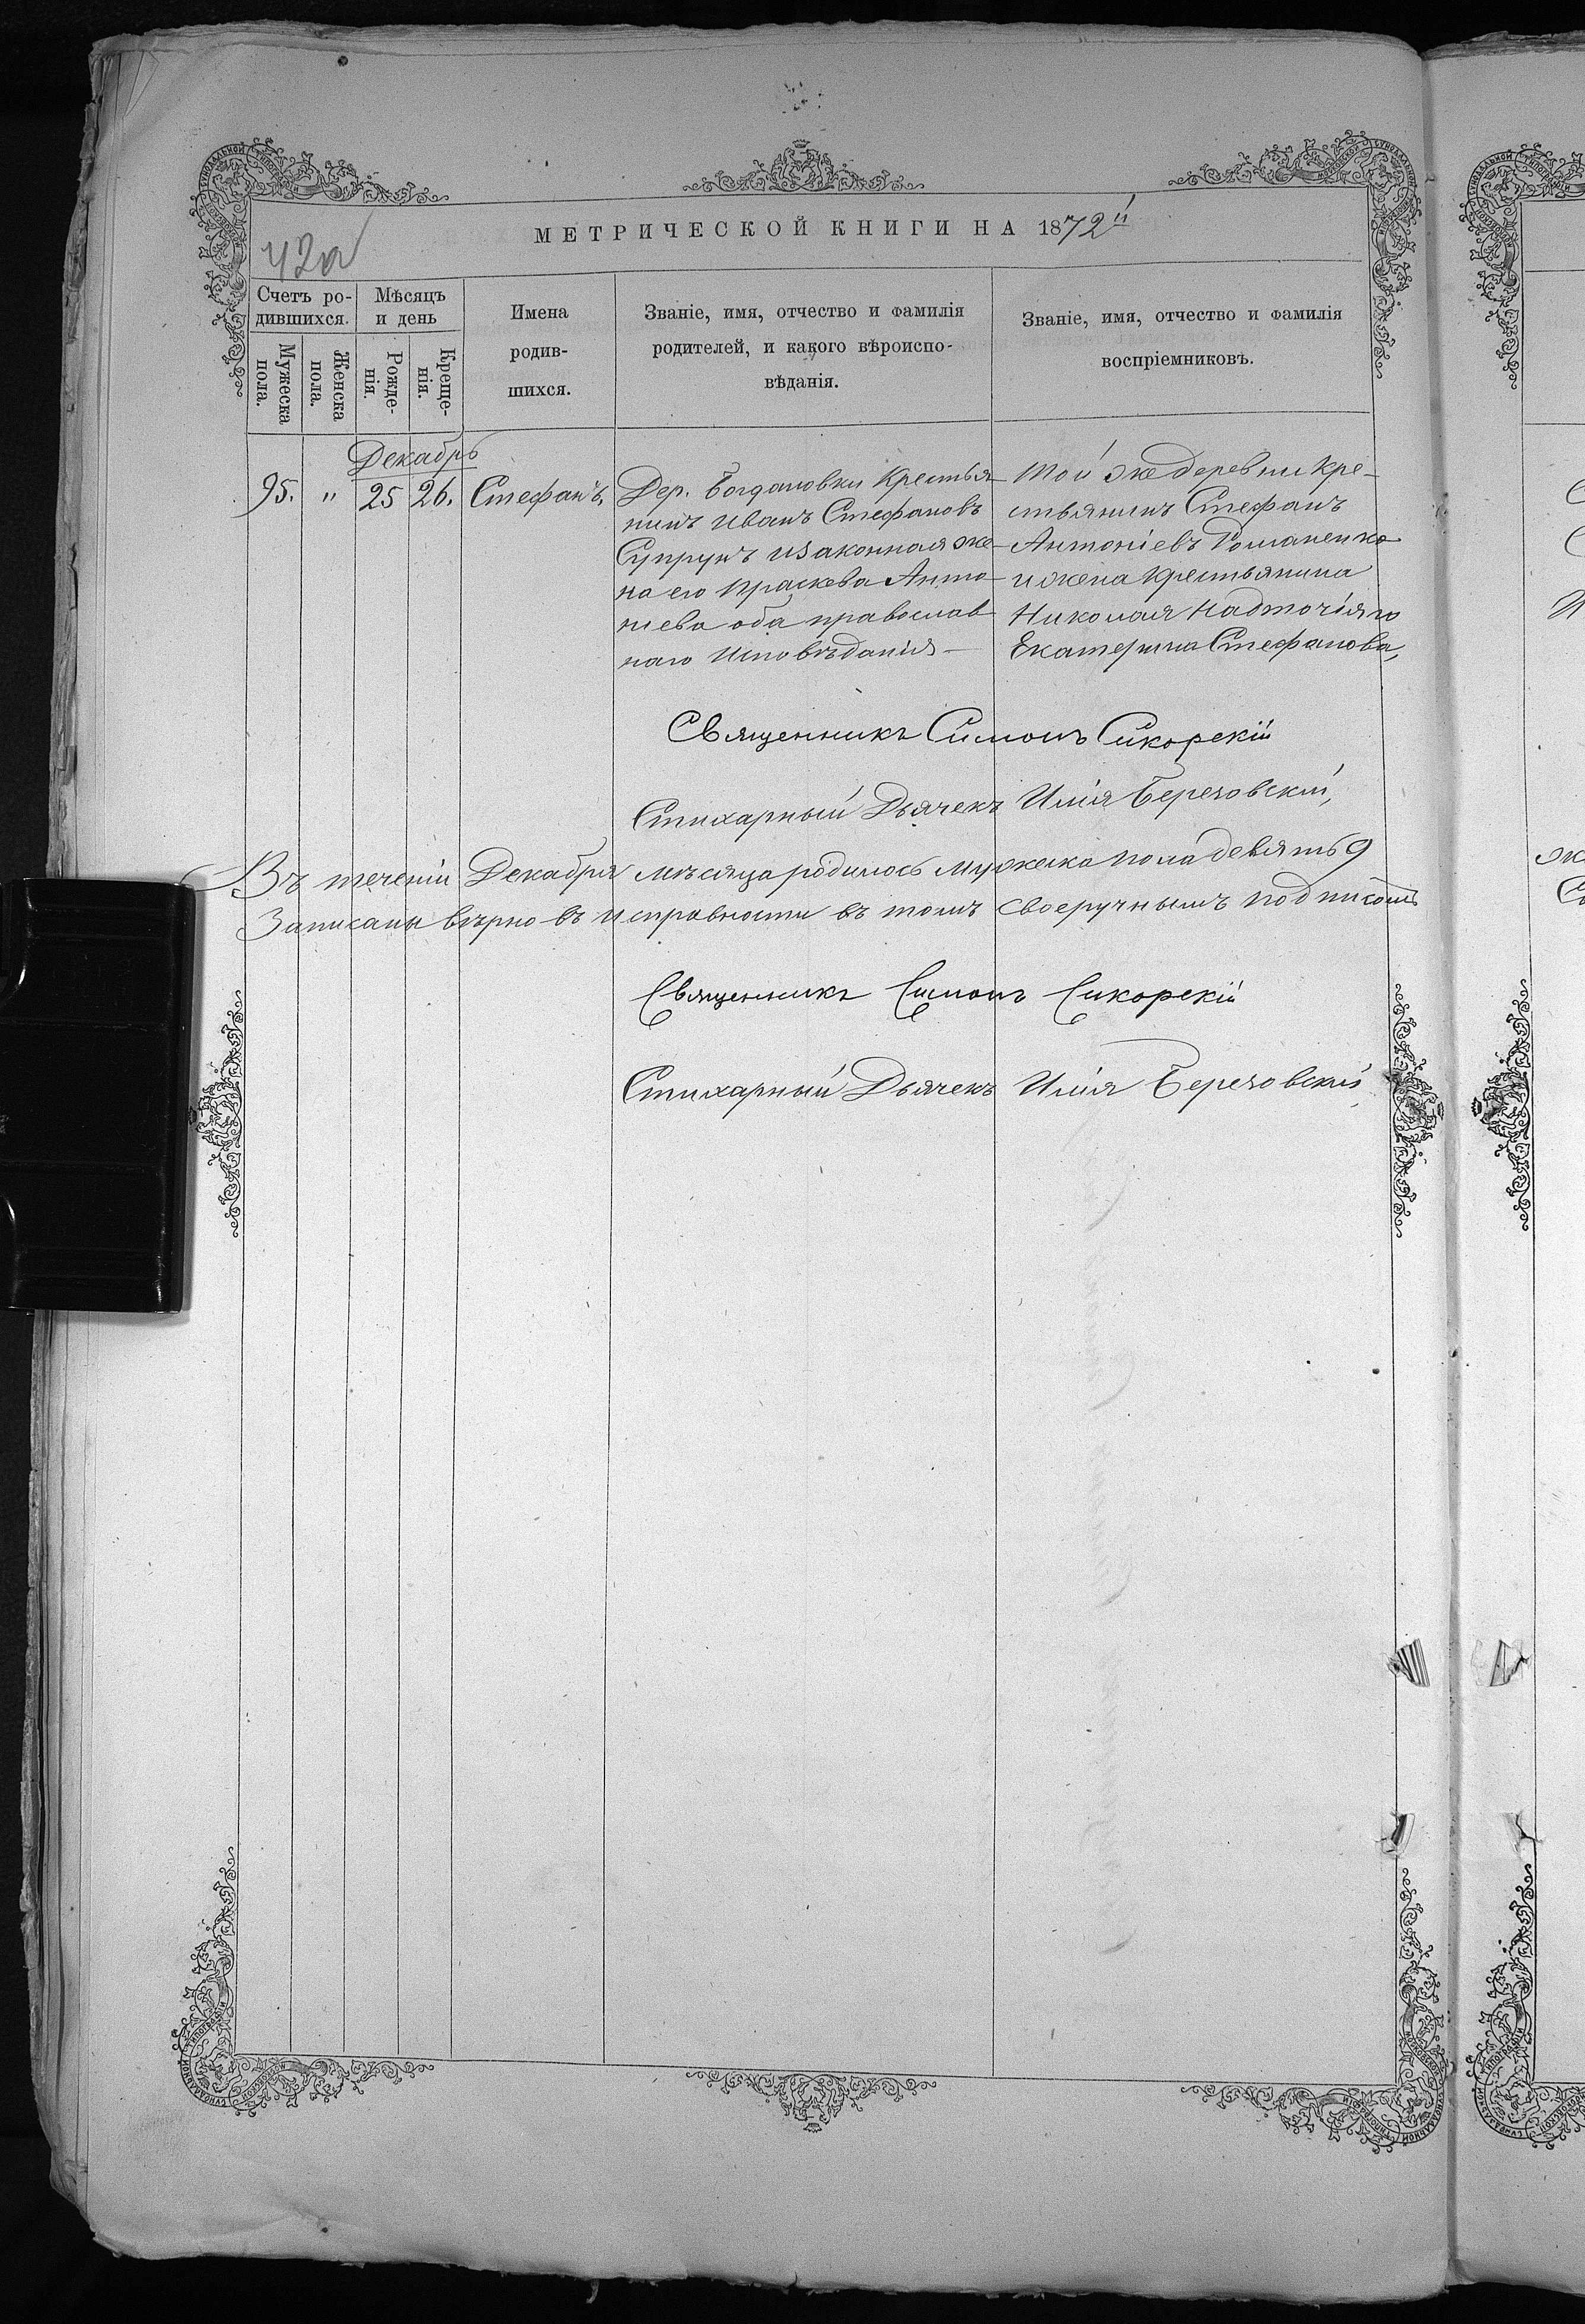 МЕТРИЧЕСКОЙ КНИГИ НА 1872й
42а
Счетъ ро-
дившихся.
Мѣсяцъ
и день
Имена
родив-
шихся.
Званіе, имя, отчество и фамилія
родителей, и какого вѣроиспо-
вѣданія.
Званіе, имя, отчество и фамилія
воспріемниковъ.
Мужеска
пола.
Женска
пола.
Рожде-
нія.
Креще-
нія.
Декабрь
95. " 25 26. Стефанъ.
Дер. Богдановки Крестья-
нинъ Иванъ Стефановъ
Супрунъ изаконная же-
на его Праскева Анто-
ніева оба православ
наго Исповѣданія –
Той же деревни Кре-
стьянинъ Стефанъ
Антоніевъ Романенко
и жена Крестьянина
Николая Надточіяго
Екатерина Стефанова,
Священникъ Симонъ Сикорскій
Стихарный Дьячекъ Илія Березовскій,
Въ теченіи Декабря мѣсяца родилось мужеска пола девять 9
Записаны вѣрно въ исправности въ томъ своеручнымъ подписомъ
Священникъ Симонъ Сикорскій
Стихарный Дьячекъ Илія Березовскій,